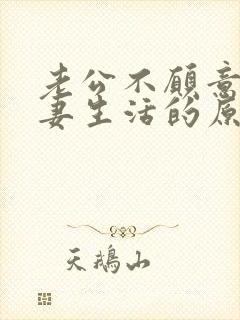 老公不愿意
妻生活的原
天鹅山